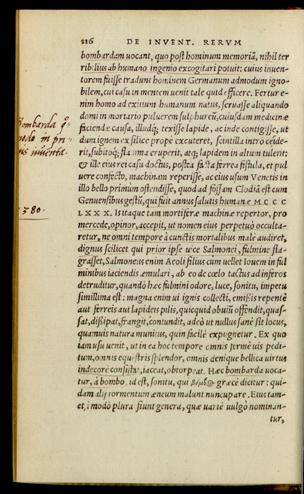 116 DE INVENT. RERVM
bombardam uocant, quo post hominum memoriã, nihil ter
ribilius ab humano ingenio excogitari potuit: cuius inuen-
torem fuisse tradunt hominem Germanum admodum igno-
bilem, cui casu in mentem uenit tale quid efficere. Fertur e-
nim homo ad exitium humanum natus, seruasse aliquando
domi in mortario puluerem sulphureũ, cuiusdam medicinæ
faciendæ causa, illudq; texisse lapide, ac inde contigisse, ut
dum ignem ex silice prope excuteret, scintilla intro cecide-
rit, subitoq; flamma eruperit, atq; lapidem in altum tulerit:
& ille eius rei casu doctus, postea facta ferrea fistula, et pul
uere confecto, machinam reperisse, ac eius usum Venetis in
illo bello primum ostendisse, quod ad fossam Clodiã est cum
Genuensibus gestũ, qui fuit annus salutis humanæ M. CCC
LXXX. Itaque tam mortiferæ machinæ repertor, pro
mercede, opinor, accepit, ut nomen eius perpetuò occulta-
retur, ne omni tempore à cunctis mortalibus malè audiret,
dignus scilicet qui prior ipse uice Salmonei, fulmine fla-
grasset, Salmoneus enim Aeoli filius cum uellet Iouem in ful
minibus iaciendis æmulari, ab eo de cœlo tactus ad inferos
detruditur, quando hæc fulmini odore, luce, sonitu, impetu
simillima est: magna enim ui ignis collecti, emissis repentè
aut ferreis aut lapideis pilis, quicquid obuiũ offendit, quas-
sat, dissipat, frangit, contundit, adeò ut nullus sanè sit locus,
quamuis natura munitus, quin facilè expugnetur. Ex quo
tanusu uenit, ut in ea hoc tempore omnis fermè uis pedi-
tum, omnis equestris splendor, omnis denique bellica uirtus
indecorè consistat, iaceat, obtorpeat. Hæc bombarda uoca-
tur, à bombo. id est, sonitu, qui βόμβος græcè dicitur: qui-
dam alij tormentum aeneum malunt nuncupare. Eius tam-
et, modò plura fiunt genera, quæ uariè uulgò nominan-
tur,
Bombarda q̃
modo
inuenta.
1380.